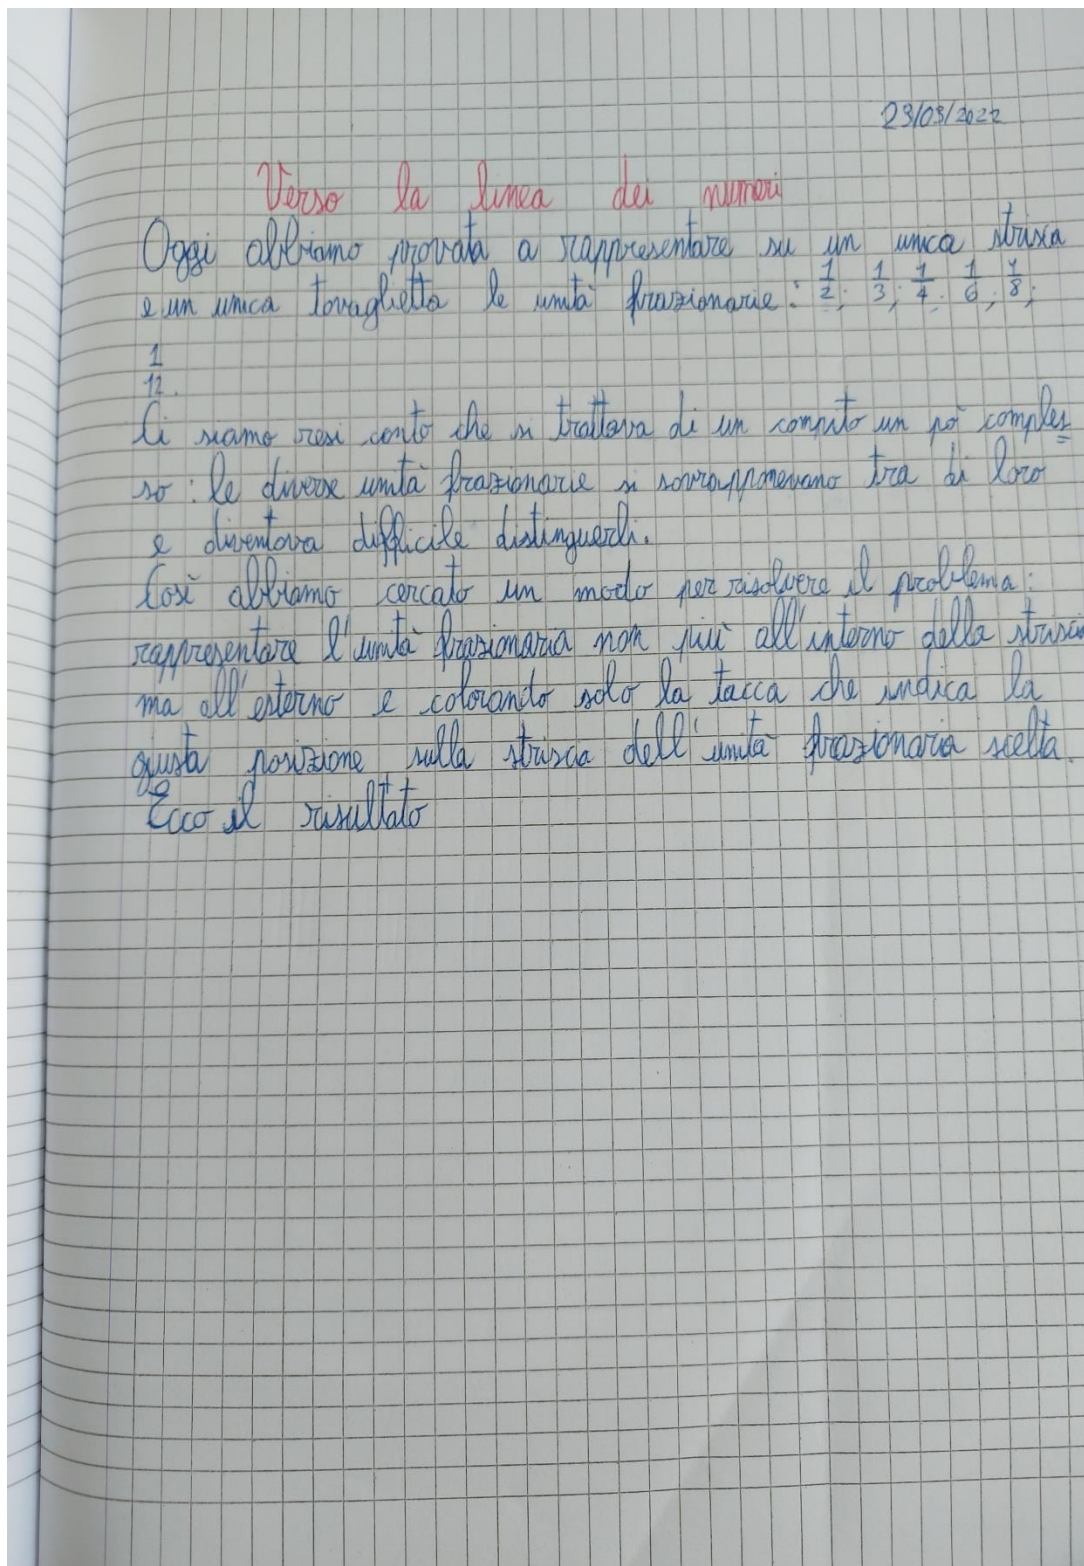 23/03/2022
Verso la linea dei numeri
Oggi abbiamo provata a rappresentare su un unica strisca
e un unica tovaglietta le unità frazionarie: 1/2; 1/3; 1/4; 1/6; 1/8;
1/12.
Ci siamo resi conto che si trattava di un compito un pò comples=
so: le diverse unità frazionarie si sovrapponevano tra di loro
e diventava difficile distinguerli.
Così abbiamo cercato un modo per risolvere il problema:
rappresentare l'unità frazionaria non più all'interno della striscia
ma all'esterno e colorando solo la tacca che indica la
giusta posizione sulla striscia dell'unità frazionaria scelta.
Ecco il risultato